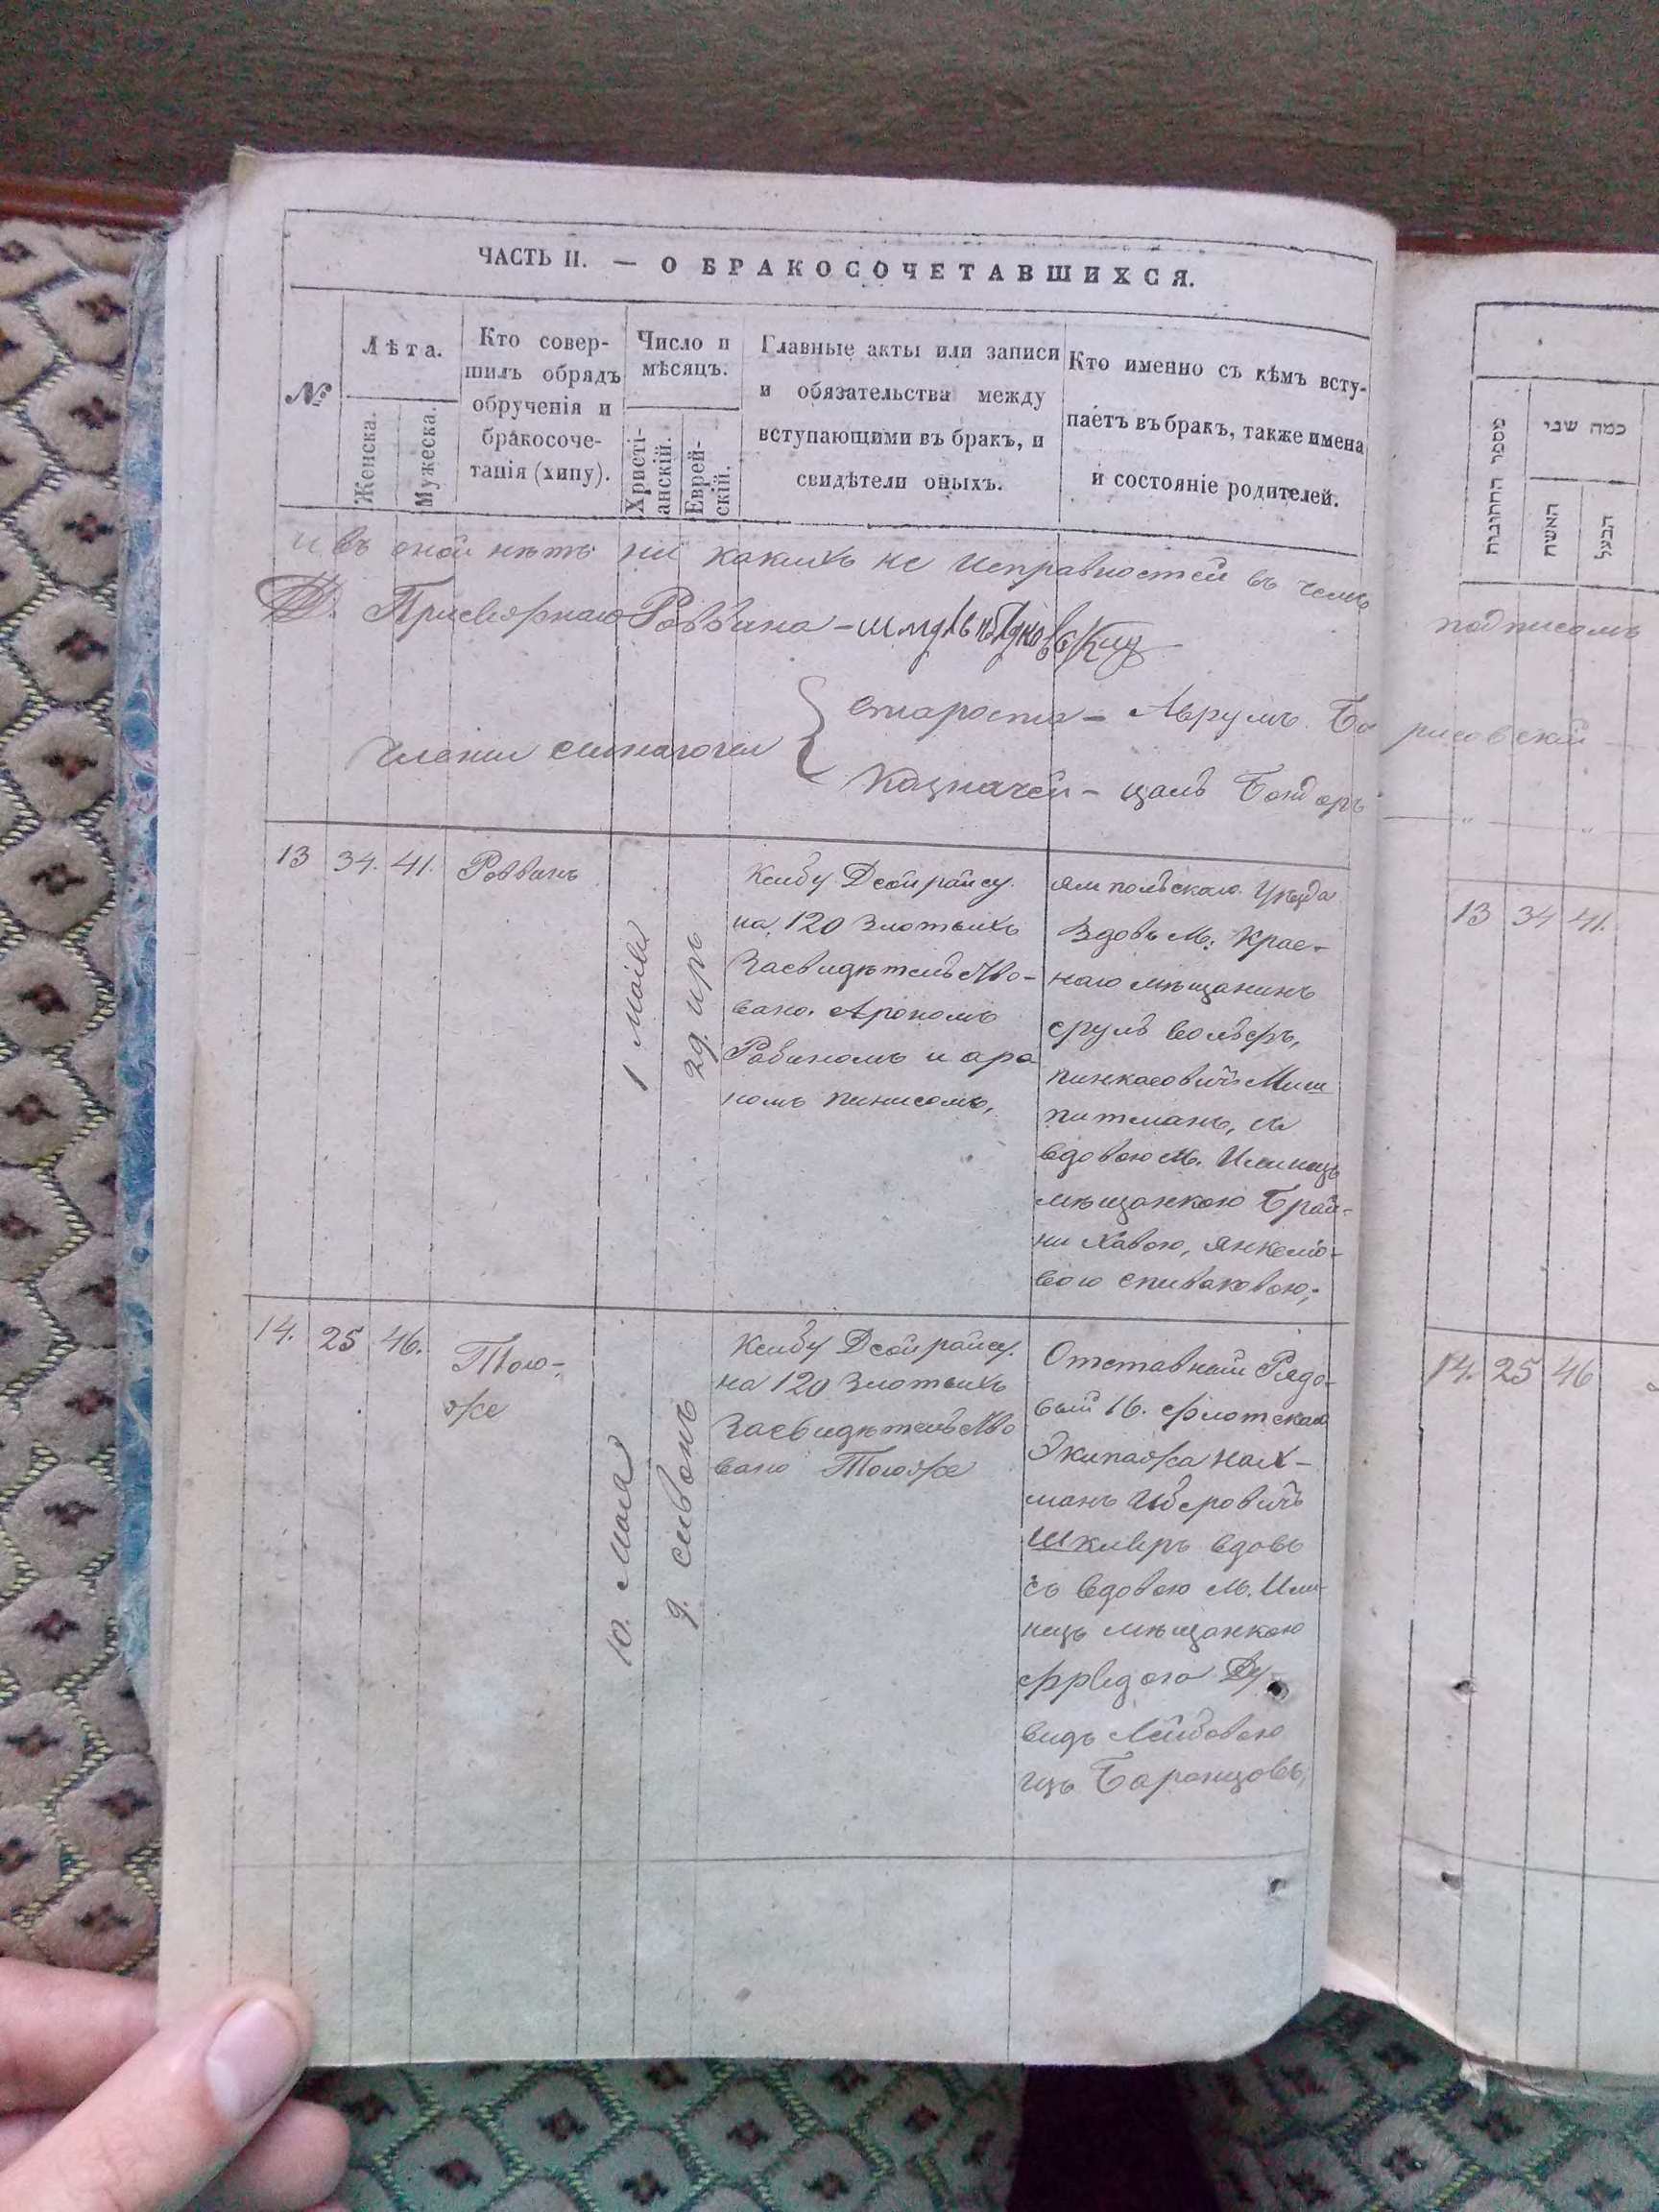 ЧАСТЬ II. — О БРАКОСОЧЕТАВШИХСЯ.
№
Лѣта.
Женска.
Мужеска.
Кто совер-
шилъ обрядъ
обрученія и
бракосоче-
танія (хипу).
Число и
мѣсяцъ.
Христі-
анскій.
Еврей-
скій.
Главные акты или записи
и обязательства между
вступающими въ брак, и
свидѣтели оныхъ.
Кто именно съ кѣмъ всту-
паетъ въ бракъ, также имена
и состояніе родителей.
и въ оной нѣтъ ни какихъ не исправностей въ чемъ
подписомъ
Раввина
члены синагоги
староста - Аврумъ Бо
рисовский
Казначей - Бондаръ
13
34.
41.
Раввинъ
1 маія
29. иръ
Ксибу Дсойрайсу.
на 120 злотыхъ
Засвидѣтельство-
вано. Арономъ
Рабиномъ и аро
номъ пинисомъ,
ямпольскаго уѣзда
вдовъ М. Крас-
наго мѣщанинъ
сруль вольфъ,
пинкасовичъ Миш
питманъ, съ
вдовою М. Илинецъ
мѣщанкою Брай-
ни Хавою, янкелю-
вою спиваковою,
14.
25
46.
Тою-
же
10. мая
9. сивонъ
Ксибу Дсойрайсу.
на 120 злотыхъ
Засвидѣтельство
вано Тоюже
Отставный Рядо-
вый 16. флотскаго
Экипажа нах-
манъ Иберовичъ
Шкляръ вдовъ
съ вдовою М. Или-
нецъ мѣщанкою
видъ Лейбовою
изъ
מספר החתונות
כמה שני
האשה
הבעל
13
34
41.
14.
25
46